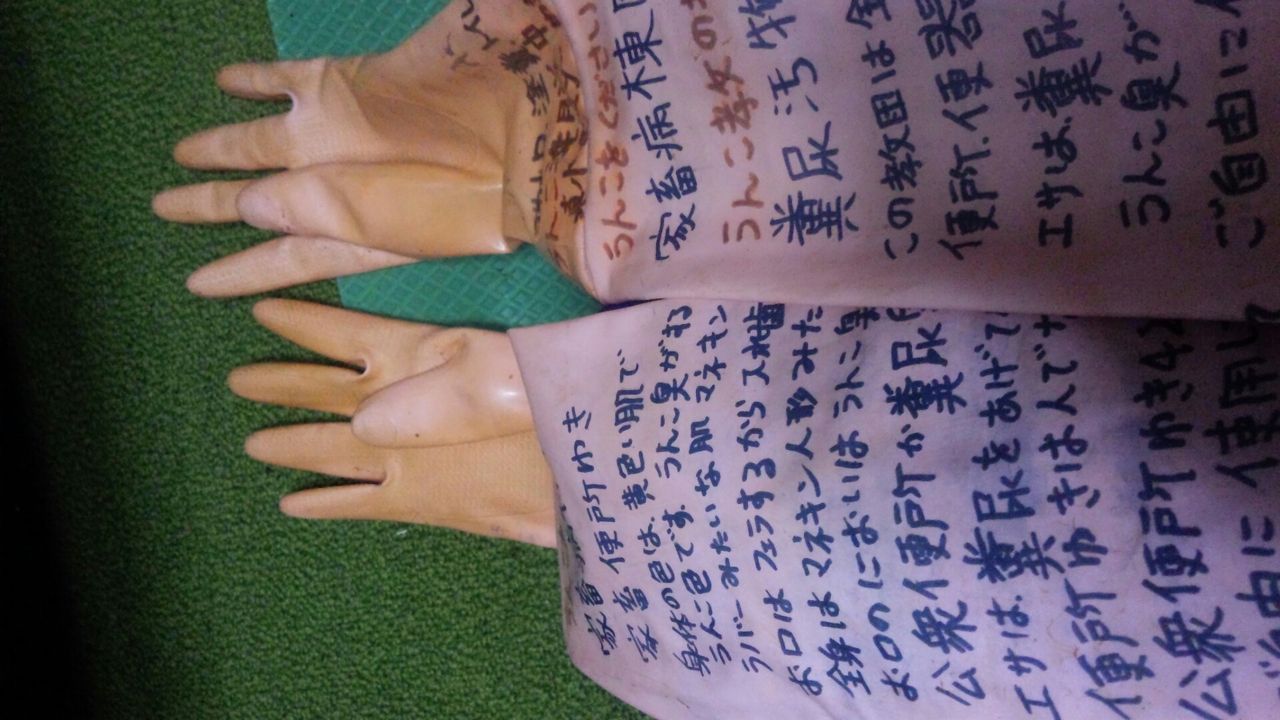 うんこをください
家畜病木東
うんこ教女の
糞尿汚物
この教団は全
便所.便器
エサは.糞尿
うんこ臭が
ご自由に
家畜 便所ゆき
家畜
身体の色は、黄色い肌で
うんこ色です。うんこ臭がする
ラバーみたいな肌 マネキン
お口は フェラするから入歯
全身は マネキン人形みた
お口のにおいはうんこ臭
公衆便所か糞尿
エサは.糞尿をあげて
便所ゆきは人で
公衆便所ゆき42
ご自由に使用して